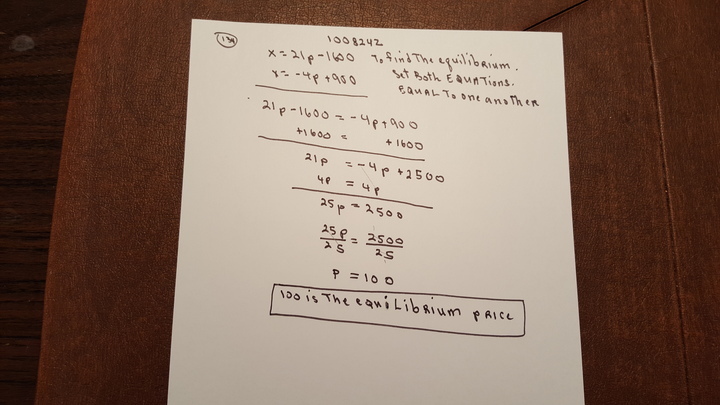 134
1008242
x = 21p - 1600 To find The equilibrium.
x = -4p + 900 Set Both EQUATIons.
EQUAL To one another
21p - 1600 = -4p + 900
+1600 = +1600
21p = -4p + 2500
4p = 4p
25p = 2500
25p/25 = 2500/25
P = 100
100 is The equiLibRium pRice